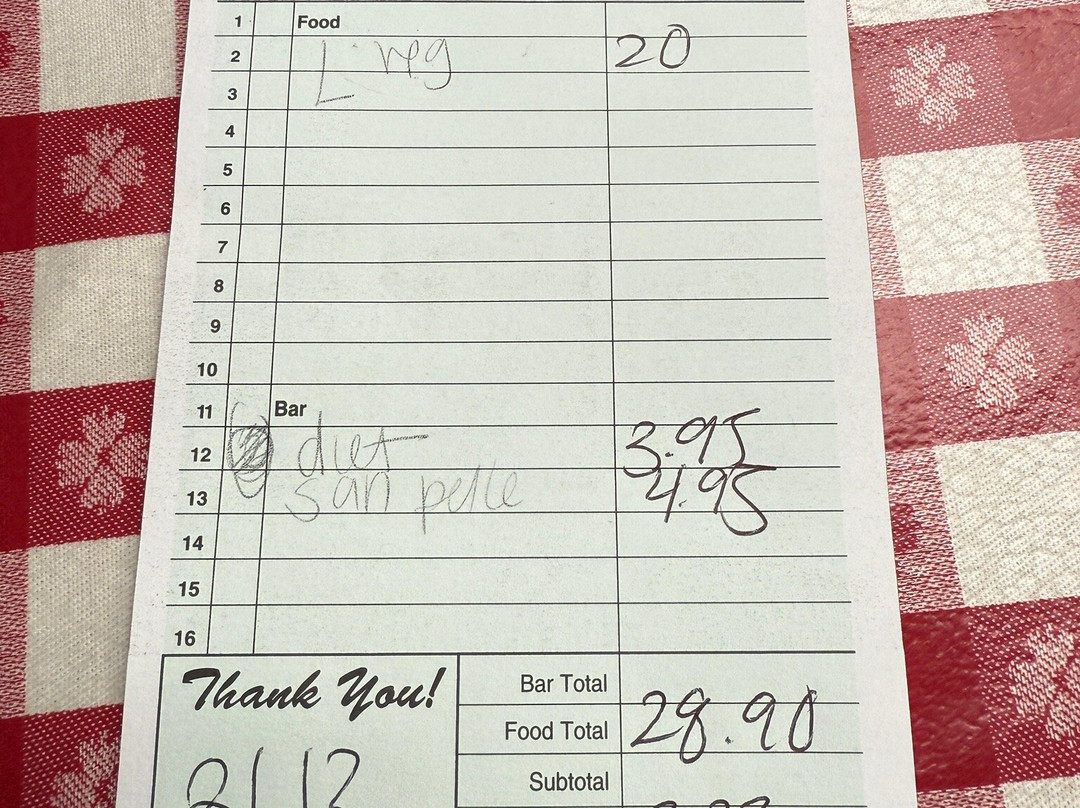 1 Food
2 L reg 20
3
4
5
6
7
8
9
10
11 Bar
12 diet 3.95
13 san pelle 4.95
14
15
16
Thank You!
Bar Total
Food Total 28.90
Subtotal